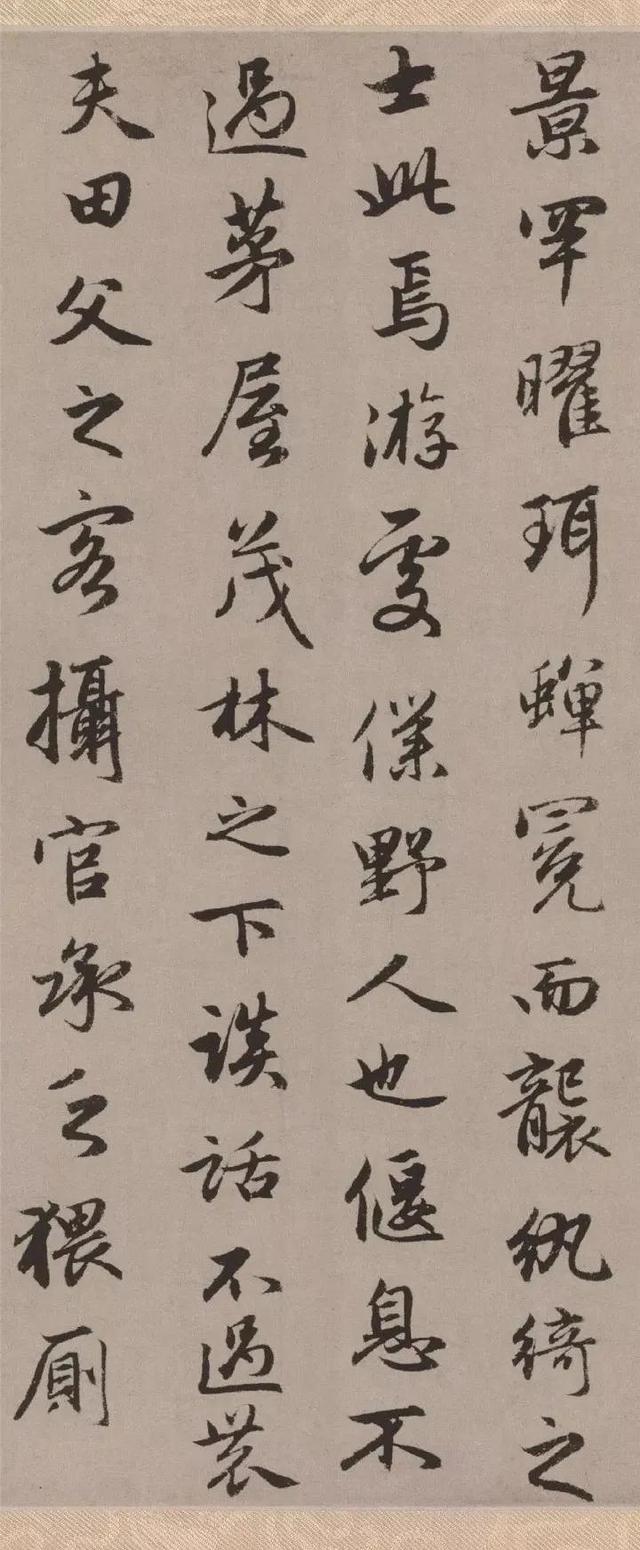 景罕曜珥蟬冕而襲紈綺之
士此焉游處僕野人也偃息不
過茅屋茂林之下談話不過農
夫田父之客攝官承乏猥厠